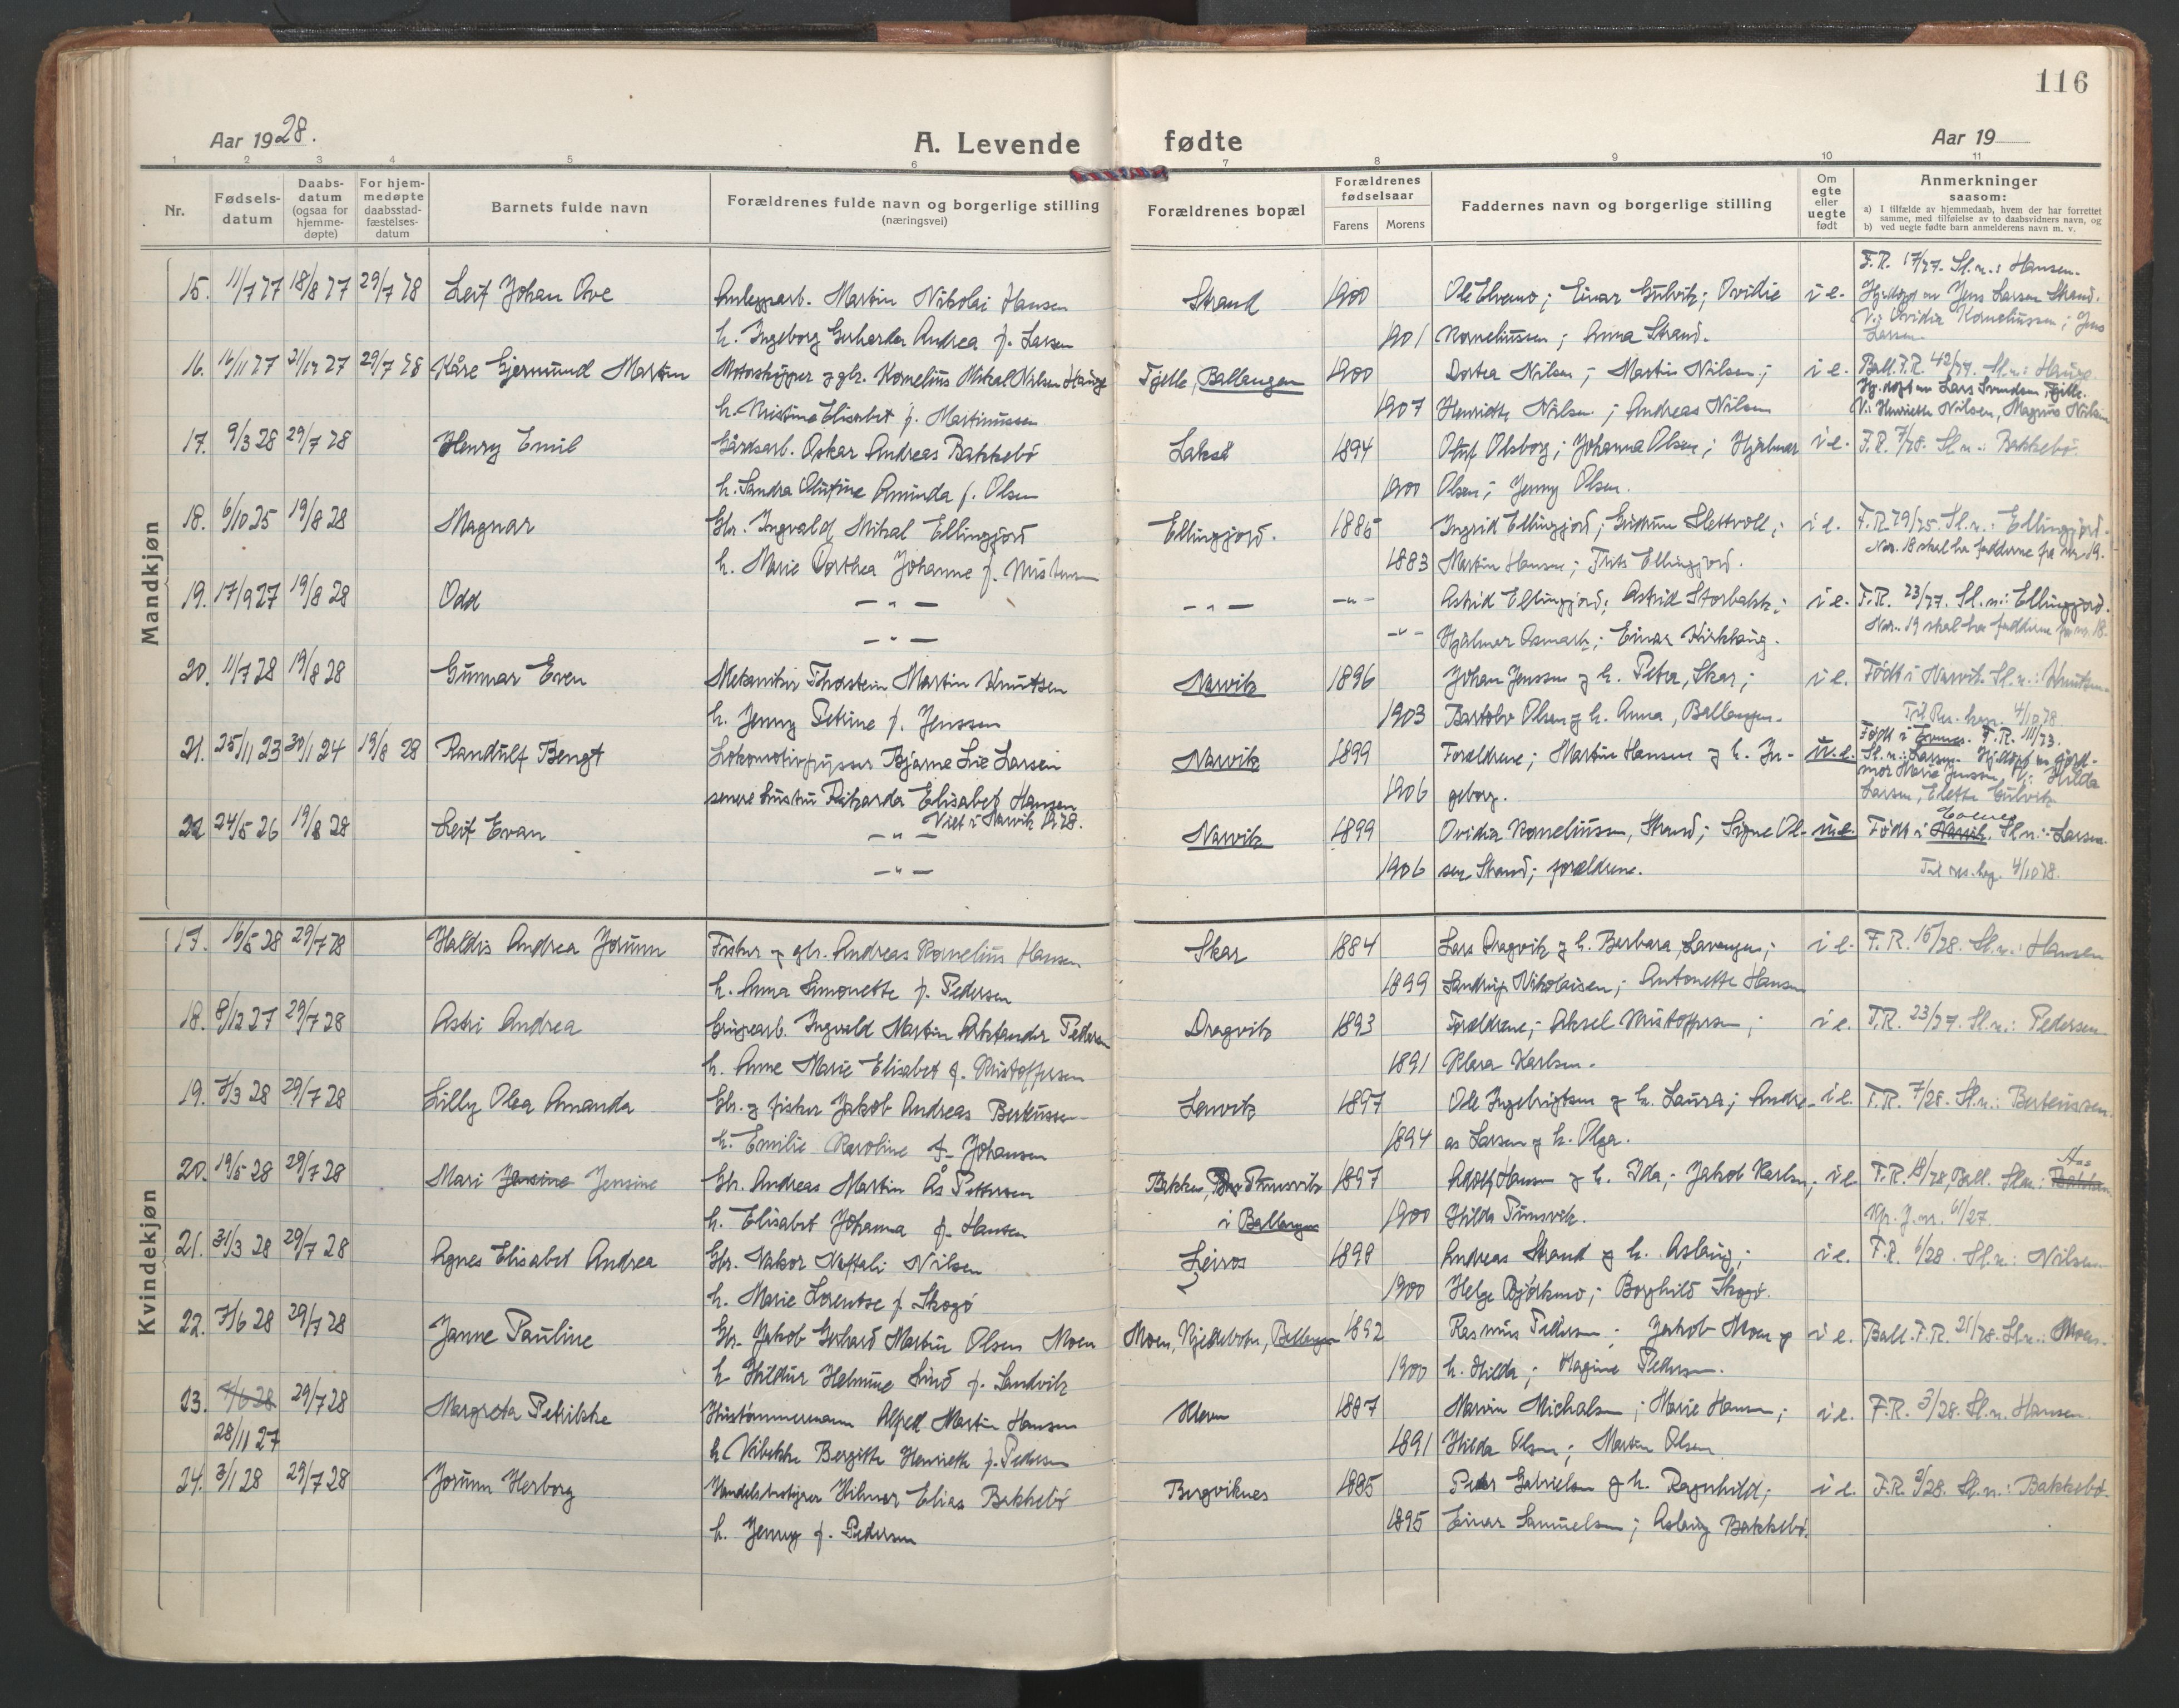 116
Aar 1928.
A. Levende fødte
Aar 19
1 2 3 4 5 6 7 8 9 10 11
Nr.
Fødsels-
datum
Daabs-
datum
(ogsaa for
hjemme-
døpte)
For hjem-
medøpte
daabsstad-
fæstelses-
datum
Barnets fulde navn
Forældrenes fulde navn og borgerlige stilling
(næringsvei)
Forældrenes bopæl
Forældrenes
fødselsaar
Farens Morens
Faddernes navn og borgerlige stilling
Om
egte
eller
uegte
født
Anmerkninger
saasom:
a) I tilfælde av hjemmedaab, hvem der har forrettet
samme, med tilføielse av to daabsvidners navn, og
b) ved uegte fødte barn anmelderens navn m. v.
Mandkjøn
F.R. 17/27. Sl.n.: Hansen.
15. 11/7 27 18/8 27 29/7 28 Leif Johan Ove Anleggsarb. Martin Nikolai Hansen Strand 1900 Ole Elvemo; Einar Gulvik; Ovidie i e. Hj.døpt av Jens Larsen Strand.
V.: Ovidia Korneliussen; Jens
h. Ingeborg Gerharda Andrea f. Larsen 1901 Korneliussen; Anna Strand. Larsen.
16. 16/11 27 21/12 27 29/7 28 Kåre Gjermund Martin Motorskipper og gbr. Kornelius Mikal Nilsen Hauge Fjelle, Ballangen 1900 Dortea Nilsen; Martin Nilsen; i e. Ball. F.R. 42/27. Sl.n.: Hauge.
Hj. døpt av Lars Svendsen, Fjelle.
h. Kristine Elisabet f. Martinussen 1907 Henriette Nilsen; Andreas Nilsen V.: Henriette Nilsen, Magnus Nilsen
17. 9/3 28 29/7 28 Henry Emil Gårdsarb. Oskar Andreas Bakkebø Lakså 1894 Oluf Olsborg; Johanna Olsen; Hjalmar i e. F.R. 7/28. Sl.n.: Bakkebø.
h. Sandra Olufine Aminda f. Olsen 1900 Olsen; Jenny Olsen.
18. 6/10 25 19/8 28 Magnar Gbr. Ingvald Mikal Ellingjord Ellingjord. 1885 Ingrid Ellingjord; Gudrun Slettvoll; i e. F.R. 29/25. Sl.n.: Ellingjord.
Nr. 18 skal ha fadderne fra nr. 19.
h. Marie Dorthea Johanne f. Kristensen 1883 Martin Hansen; Frits Ellingjord.
19. 17/9 27 19/8 28 Odd — " — — " — — " — Astrid Ellingjord; Astrid Storbakk; i e. F.R. 23/27. Sl.n.: Ellingjord.
— " — — " — Hjalmar Osmark; Einar Kirkhaug. Nr. 19 skal ha fadderne fra nr. 18.
20. 11/7 28 19/8 28 Gunnar Even Mekaniker Thorstein Martin Knutsen Narvik 1896 Johan Jenssen og h. Petra, Skar; i e. Født i Narvik. Sl.n.: Knutsen.
h. Jenny Petrine f. Jenssen 1903 Bartolv Olsen og h. Anna, Ballangen. 4/10 28.
Født i Evenes. F.R. 111/23.
21. 25/11 23 30/1 24 19/8 28 Randulf Bengt Lokomotivpusser Bjarne Lie Larsen Narvik 1899 Forældrene; Martin Hansen og h. In- u.e. Sl.n.: Larsen. Hj.døpt av jord-
mor Marie Jenssen. V.: Hilda
senere hustru Rikarda Elisabet Hansen 1906 geborg. Larsen, Elette Gulvik
Viet i Narvik 19 28.
22 24/5 26 19/8 28 Leif Evan — " — Narvik 1899 Ovidia Korneliussen, Strand; Signe Ol- u.e. Født i Narvik Evenes. Sl.n.: Larsen.
— " — 1906 sen Strand; forældrene. Til res. kap. 4/10 28.
Kvindekjøn
17. 16/5 28 29/7 28 Haldis Andrea Jorunn Fisker og gbr. Andreas Kornelius Hansen Skar 1884 Lars Dragvik og h. Barbara, Lavangen; i e. F.R. 16/28. Sl.n.: Hansen
h. Anna Simonette f. Pedersen 1899 Sandrup Nikolaisen; Antonette Hansen
18. 8/12 27 29/7 28 Astri Andrea Grubearb. Ingvald Martin Aleksander Pedersen Dragvik 1893 Forældrene; Aksel Kristoffersen; i e. F.R. 23/27. Sl.n.: Pedersen
h. Anne Marie Elisabet f. Kristoffersen 1891 Klara Karlsen.
19. 7/3 28 29/7 28 Lilly Olea Amanda Gbr. og fisker Jakob Andreas Berteussen Lenvik 1897 Ole Ingebrigtsen og h. Laura; Andre- i e. F.R. 7/28. Sl.n.: Berteussen.
h. Emilie Karoline f. Johansen 1894 as Larsen og h. Olga.
20. 19/5 28 29/7 28 Mari Jensine Jensine Gbr. Andreas Martin Ås Pettersen Bakken, Tunsvik 1897 Adolf Hansen og h. Ida; Jakob Karlsen; i e. F.R. 18/28, Ball. Sl.n.: Aas
h. Elisabet Johanna f. Hansen i Ballangen 1900 Hilda Tunsvik.
21. 31/3 28 29/7 28 Agnes Elisabet Andrea Gbr. Nakor Naftali Nilsen Leiros 1898 Andreas Strand og h. Aslaug; i e. F.R. 6/28. Sl.n.: Nilsen
h. Marie Lorentse f. Skogø 1900 Helge Bjørkmo; Borghild Skogø.
22. 7/6 28 29/7 28 Janne Pauline Gbr. Jakob Gerhard Martin Olsen Moen Moen, Kjeldebotn, Ballangen 1892 Rasmus Pedersen; Jakob Moen og i e. Ball. F.R. 21/28. Sl.n.: Moen.
h. Hildur Helmine Lind f. Sandvik 1900 h. Hilda; Hagine Pedersen.
23. 7/6 28 29/7 28 Margreta Petrikke Hustømmermann Alfred Martin Hansen Kleven 1887 Marvin Michalsen; Marie Hansen; i e. F.R. 3/28. Sl.n. Hansen.
28/11 27 h. Vibekke Bergitte Henriette f. Pedersen 1891 Hilda Olsen; Martin Olsen
24. 3/1 28 29/7 28 Jorunn Herborg Handelsbestyrer Hilmar Elias Bakkebø Bergviknes 1895 Peder Gabrielsen og h. Ragnhild; i e. F.R. 9/28. Sl.n.: Bakkebø.
h. Jenny f. Pedersen 1895 Einar Samuelsen; Aslaug Bakkebø.